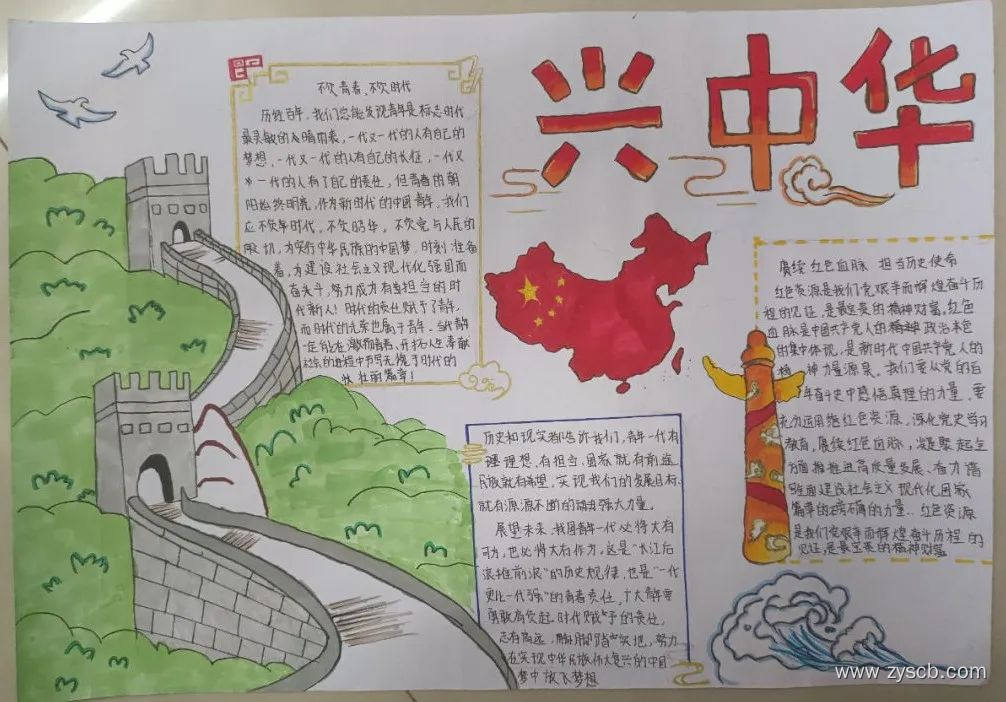 兴中华
不负青春,不负时代
历经百年,我们总能发现青年是标志时代
最灵敏的晴雨表,一代又一代的人有自己的
梦想,一代又一代的人有自己的长征,一代又
一代的人有了自己的责任,但青春的朝
阳始终明亮,作为新时代的中国青年,我们
应不负年时代,不负韶华,不负党与人民的
殷切,为实行中华民族的中国梦,时刻准备
着,为建设社会主义现代化强国而
奋头斗,努力成为有担当的时
代新人!时代的责任赋予了青年,
而时代的光荣也属于青年。当代青年
一定能在激扬青春、开拓人生、奉献
社会的进程中书写无愧于时代的
壮丽篇章!
历史和现实都告诉我们,青年一代有
理想,有担当,国家就有前途
民族就有希望,实现我们的发展目标,
就有源源不断的强大力量。
展望未来,我国青年一代必将大有
可为,也必将大有作为,这是“长江后
浪推前浪”的历史规律,也是“一代
更比一代强”的青春责任,广大青年要
勇敢肩负起时代赋予的责任,
志存高远,脚踏实地,努力
在实现中华民族伟大复兴的中国
梦中放飞梦想
赓续红色血脉 担当历史使命
红色资源是我们党艰辛而辉煌奋斗历
程的见证,是最宝贵的精神财富,红色
血脉是中国共产党人的精神政治本色
的集中体现,是新时代中国共产党人的
精神力量源泉。我们要从党的百
年奋斗史中感悟真理的力量,要
充分运用红色资源,深化党史学习
教育,赓续红色血脉,凝聚起全
方面推进高质量发展、奋力谱
写全面建设社会主义现代化国家
篇章的磅礴的力量。红色资源
是我们党艰辛而辉煌奋斗历程的
见证,是最宝贵的精神财富
www.zyscb.com